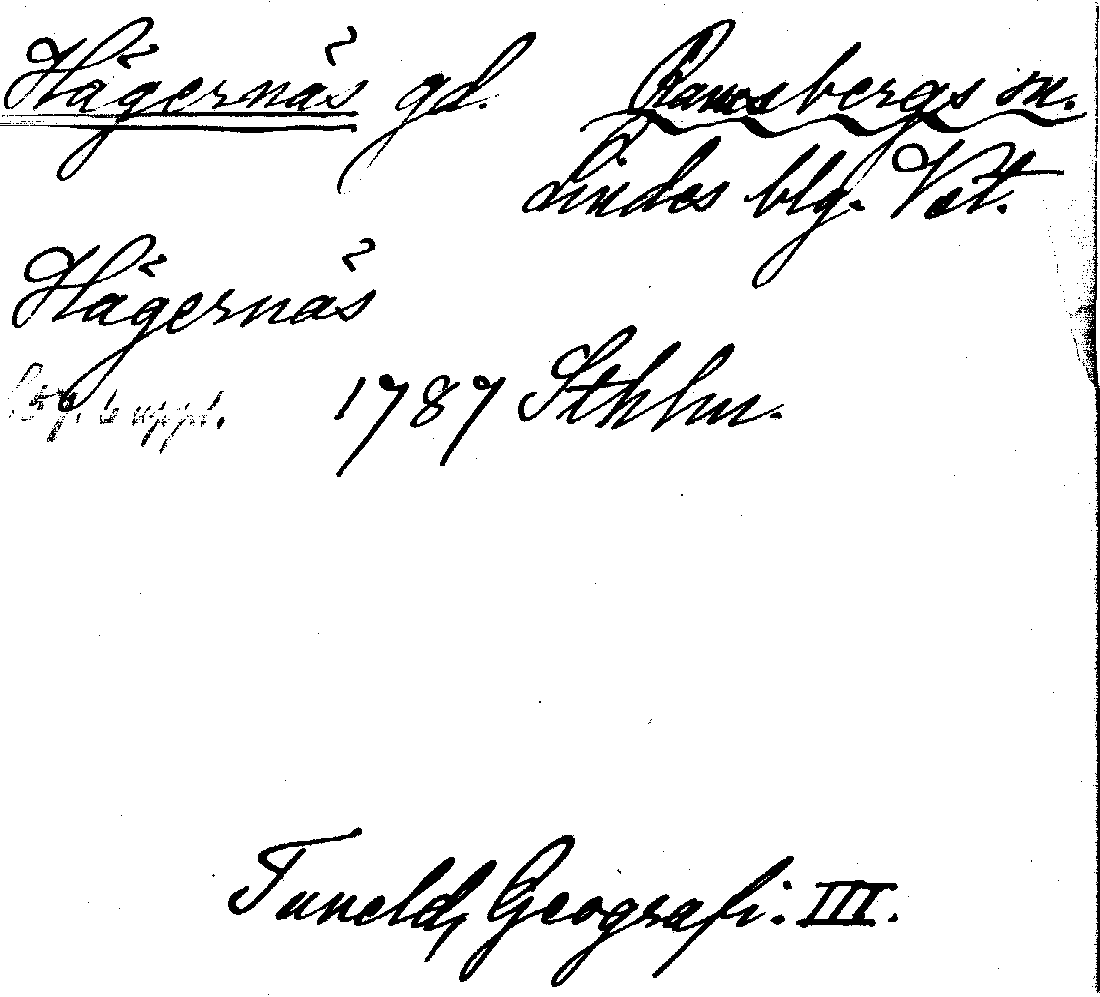 Hägernäs gd. Ramsbergs sn.
Lindes blg. Vst.
Hägernäs
6 uppl. 1787 Sthlm.
Tuneld, Geografi. III.